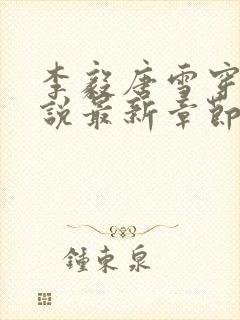 李毅唐雪穿
說最新章節
鍾東泉